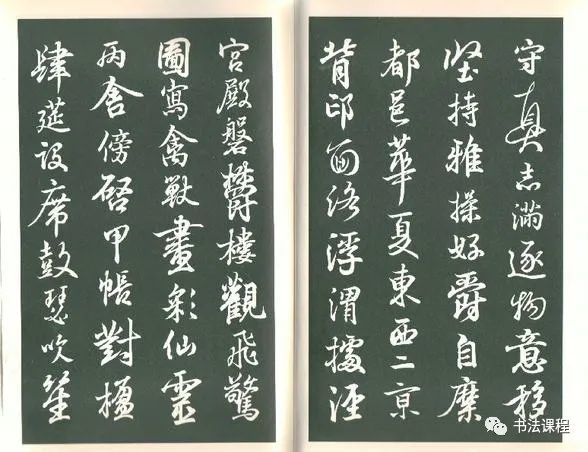 守真志滿逐物意移
堅持雅操好爵自縻
都邑華夏東西二京
背邙面洛浮渭據涇
宮殿磐鬱樓觀飛驚
圖寫禽獸畫彩仙靈
丙舍傍啓甲帳對楹
肆筵設席鼓瑟吹笙
书法课程